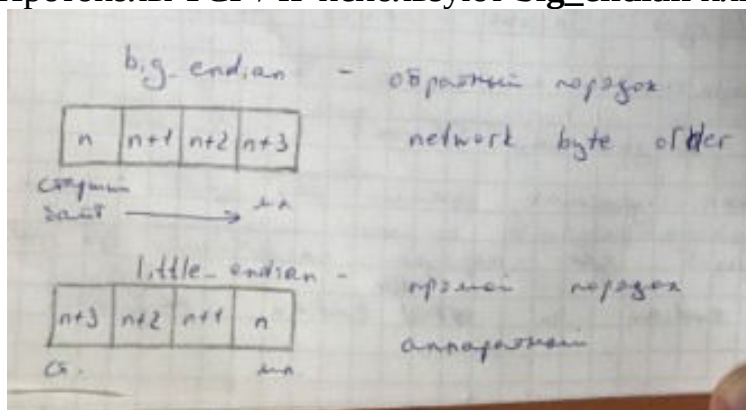 big_endian - обратный порядок
n n+1 n+2 n+3 network byte order
старший мл
байт
little_endian - прямой порядок
n+3 n+2 n+1 n аппаратный
ст. мл